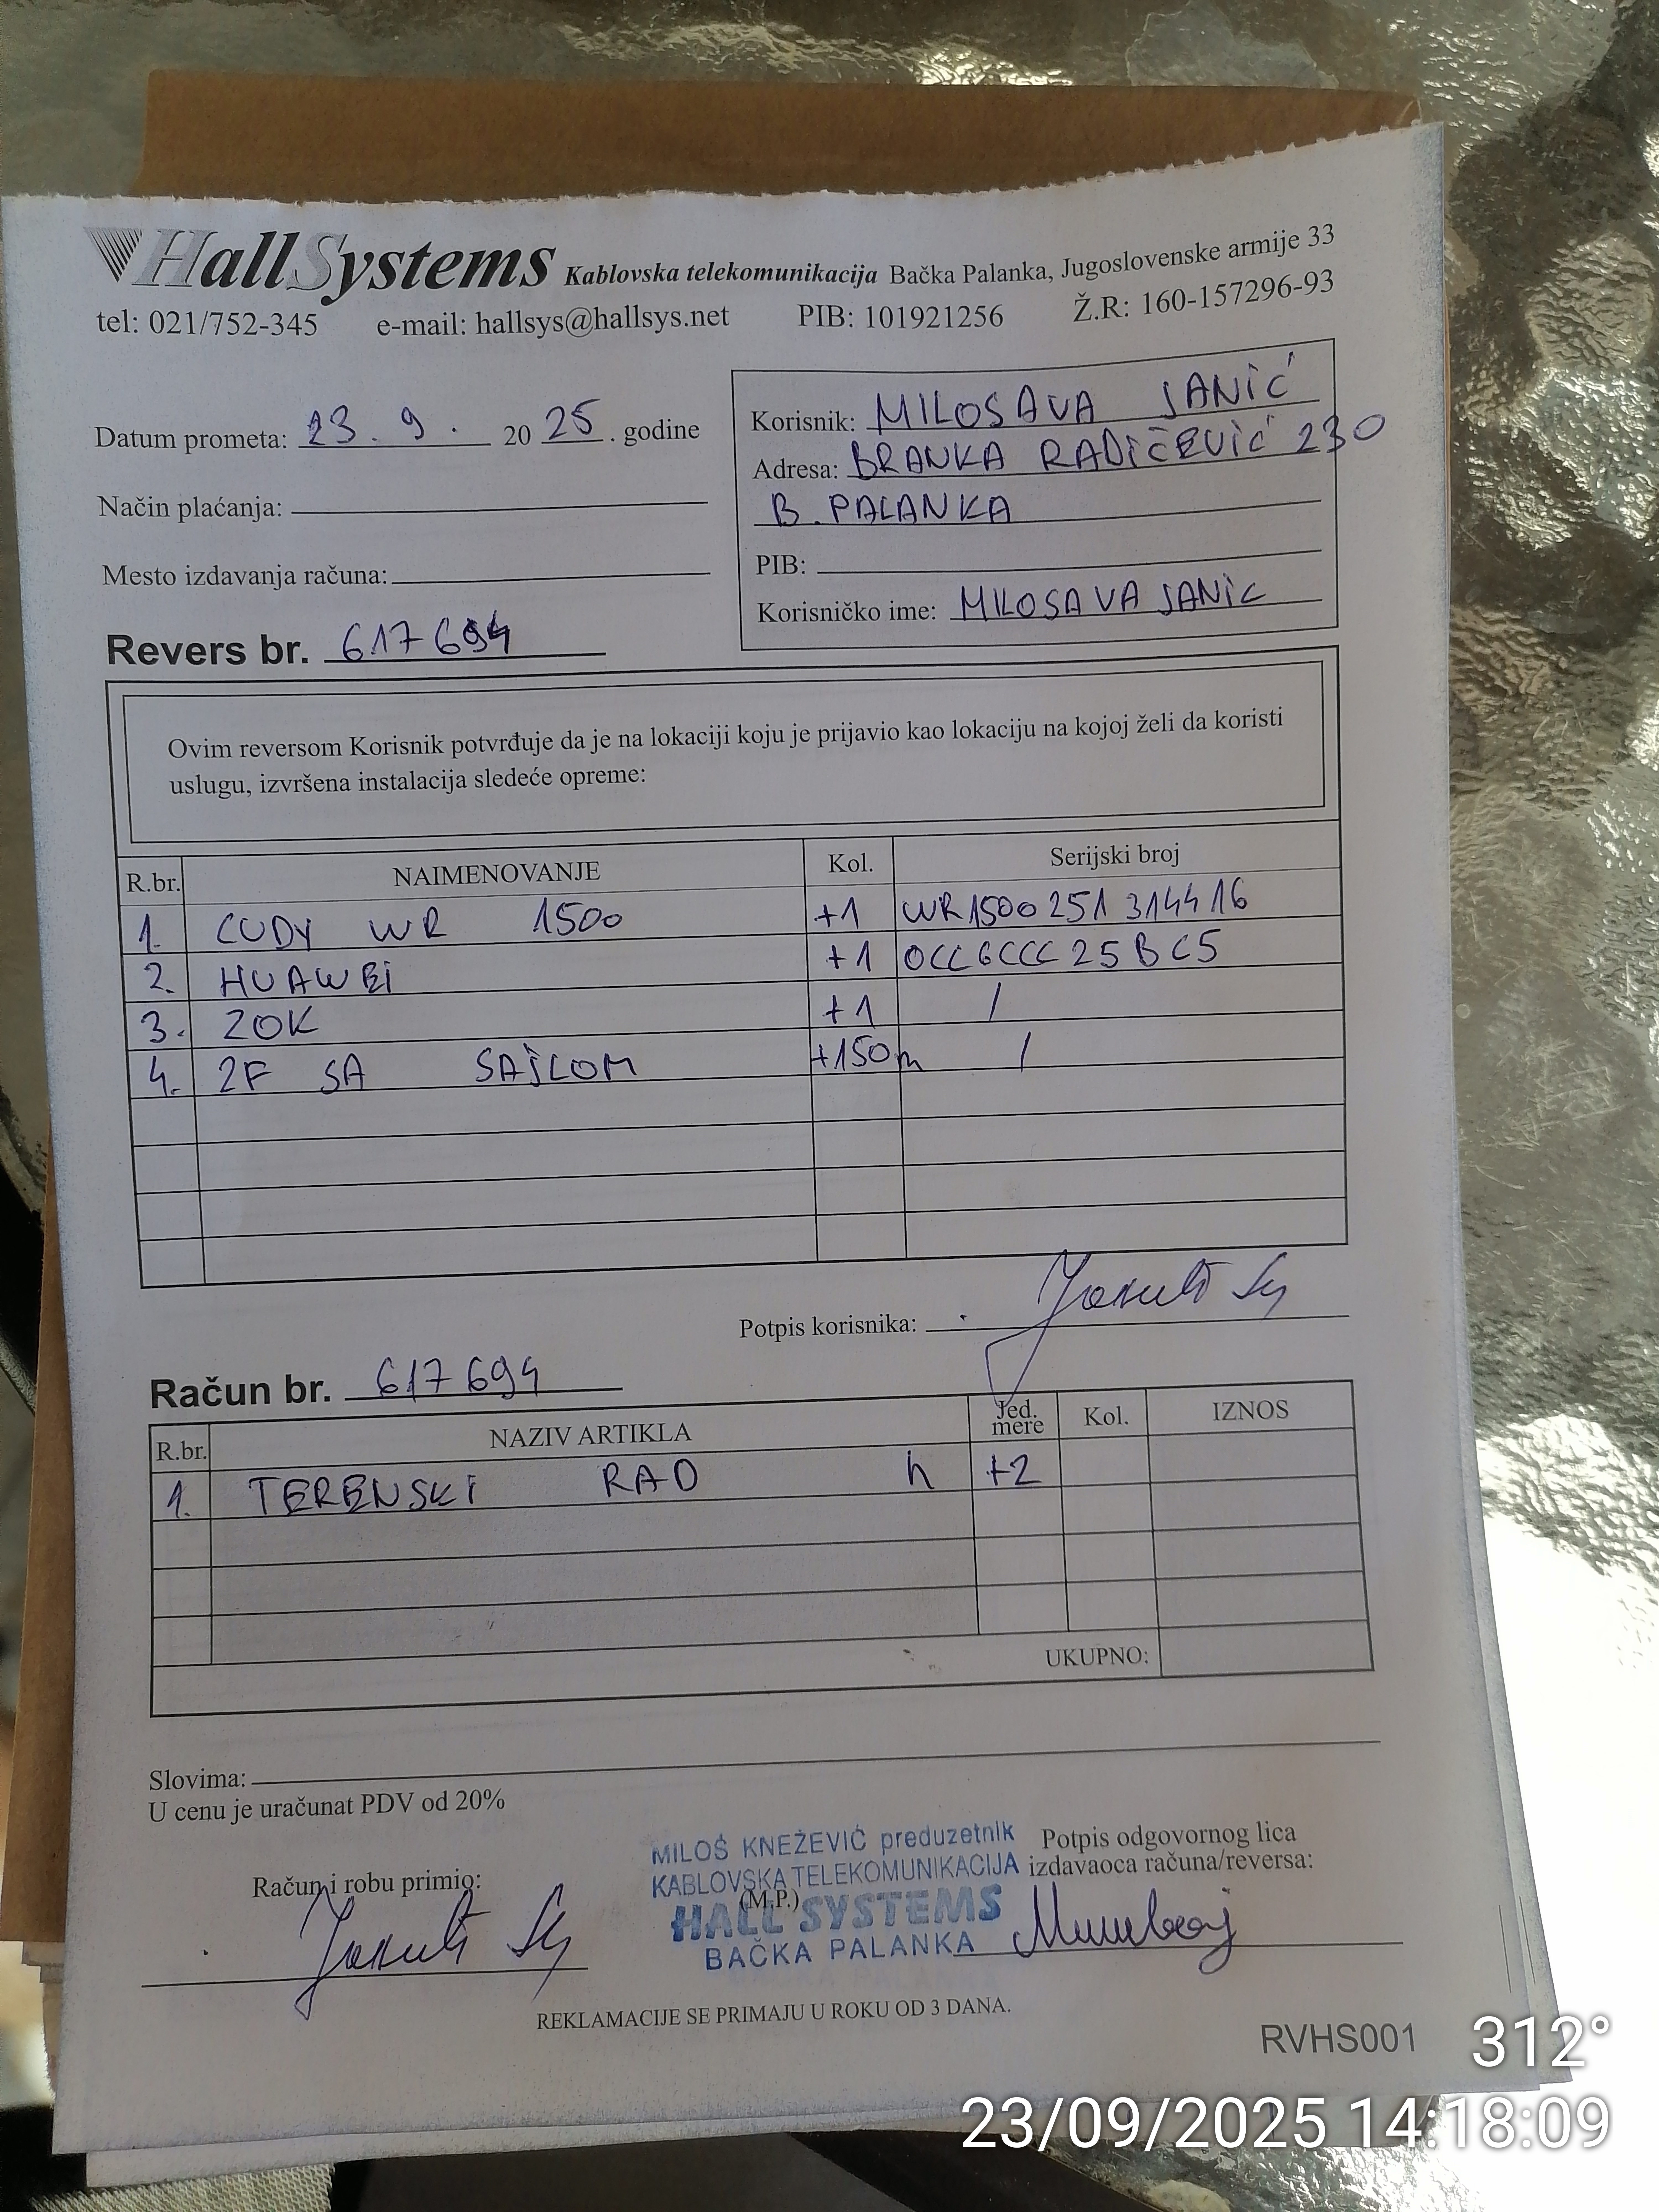 HallSystems Kablovska telekomunikacija Bačka Palanka, Jugoslovenske armije 33
tel: 021/752-345 e-mail: hallsys@hallsys.net PIB: 101921256 Ž.R: 160-157296-93
Datum prometa: 23. 9. 20 25. godine
Način plaćanja:
Mesto izdavanja računa:
Korisnik: MILOSAVA JANIĆ
Adresa: BRANKA RADIČEVIĆ 230
B. PALANKA
PIB:
Korisničko ime: MILOSAVA JANIC
Revers br. 617694
Ovim reversom Korisnik potvrđuje da je na lokaciji koju je prijavio kao lokaciju na kojoj želi da koristi
uslugu, izvršena instalacija sledeće opreme:
R.br. NAIMENOVANJE Kol. Serijski broj
1. CUDY WR 1500 +1 WR1500251314416
2. HUAWEI +1 0CC6CCC25BC5
3. ZOK +1 /
4. 2F SA SAJLOM +150m /
Potpis korisnika:
Račun br. 617694
R.br. NAZIV ARTIKLA Jed. mere Kol. IZNOS
1. TERENSKI RAD h +2
UKUPNO:
Slovima:
U cenu je uračunat PDV od 20%
Račun i robu primio:
MILOŠ KNEŽEVIĆ preduzetnik
KABLOVSKA TELEKOMUNIKACIJA
(M.P.)
HALL SYSTEMS
BAČKA PALANKA
Potpis odgovornog lica
izdavaoca računa/reversa:
REKLAMACIJE SE PRIMAJU U ROKU OD 3 DANA.
RVHS001
312°
23/09/2025 14:18:09